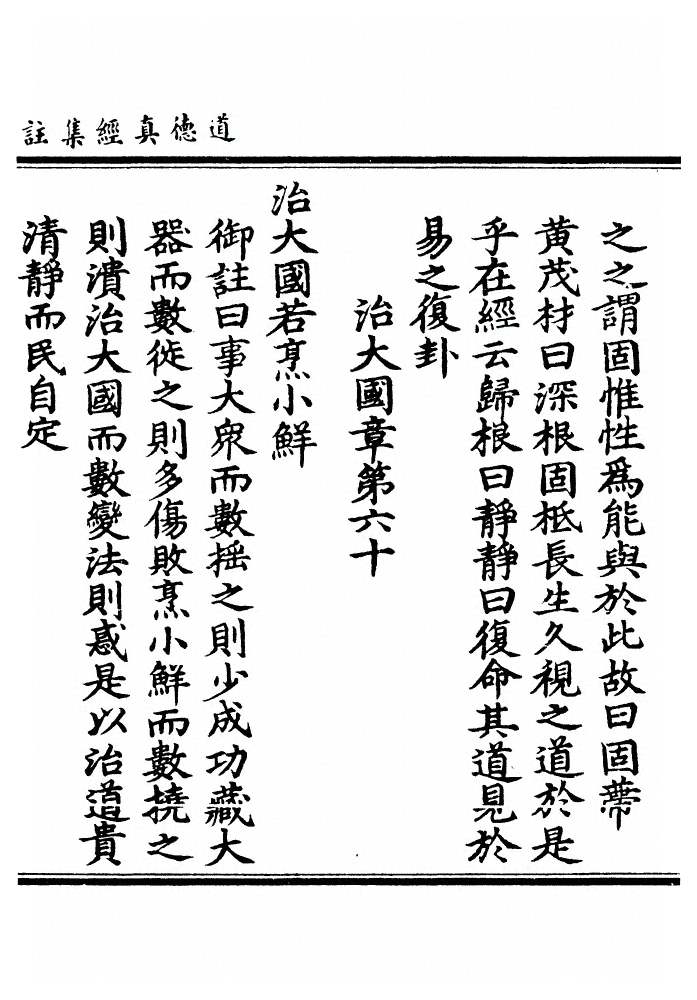 道德真經集註
之之謂固惟性爲能與於此故曰固蔕
黃茂材曰深根固柢長生久視之道於是
乎在經云歸根曰靜靜曰復命其道見於
易之復卦
治大國章第六十
治大國若烹小鮮
御註曰事大眾而數搖之則少成功藏大
器而數徙之則多傷敗烹小鮮而數撓之
則潰治大國而數變法則惑是以治道貴
清靜而民自定